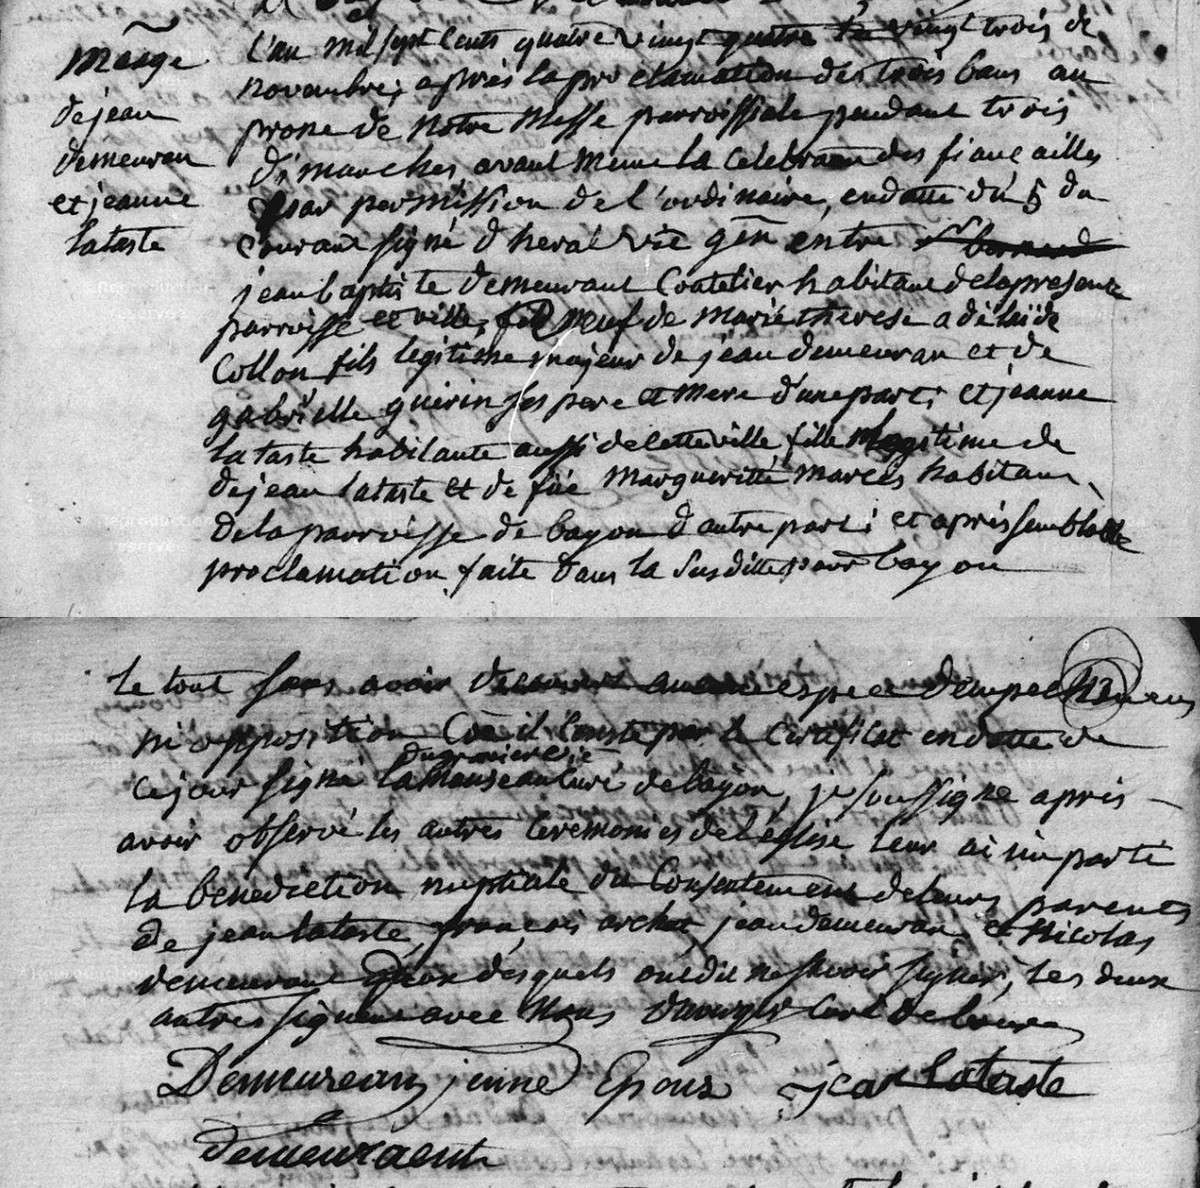 Mãage
de jean
demeuran
et jeanne
lataste
L'an mil sept cents quatre vingt quatre le vingt trois de
novembre, après la proclamation des trois bans au
prone de notre Messe parroissiale pendant trois
dimanches, avant meme la celebraõn des fiancailles
par permission de l'ordinaire, en datte du 5 du
courant signé d'heral vic gen entre
jean baptiste demeurant Coatelier habitant de la presente
parroisse et ville, veuf de Marie therese adelaïde
Collon fils legitime majeur de jean demeuran et de
gabrielle guérin ses pere et mere d'une part; et jeanne
lataste habitante aussi de cette ville, fille legitime de
de jean lataste et de füe Margueritte Marcés habitans
de la parroisse de bayon d'autre part; et après semblable
proclamation faite dans la susditte parr bayon
le tout sans avoir decouvert aucune espece d'empechemens
ni opposition Cõe il Conste par le Certificat en datte de
du premier
ce jour signé lamanseau curé de bayon, je soussigne après
avoir observé les autres ceremonies de l'église leur ai imparti
la benediction nuptiale du Consentement de leurs parents
de jean lataste, françois archat jean demeuran et Nicolas
demeurant deux desquels ont dit ne scavoir signer, les deux
autres signent avec Nous Curé de bourg
Demeurean jeune Epoux jean lataste
demeuraent